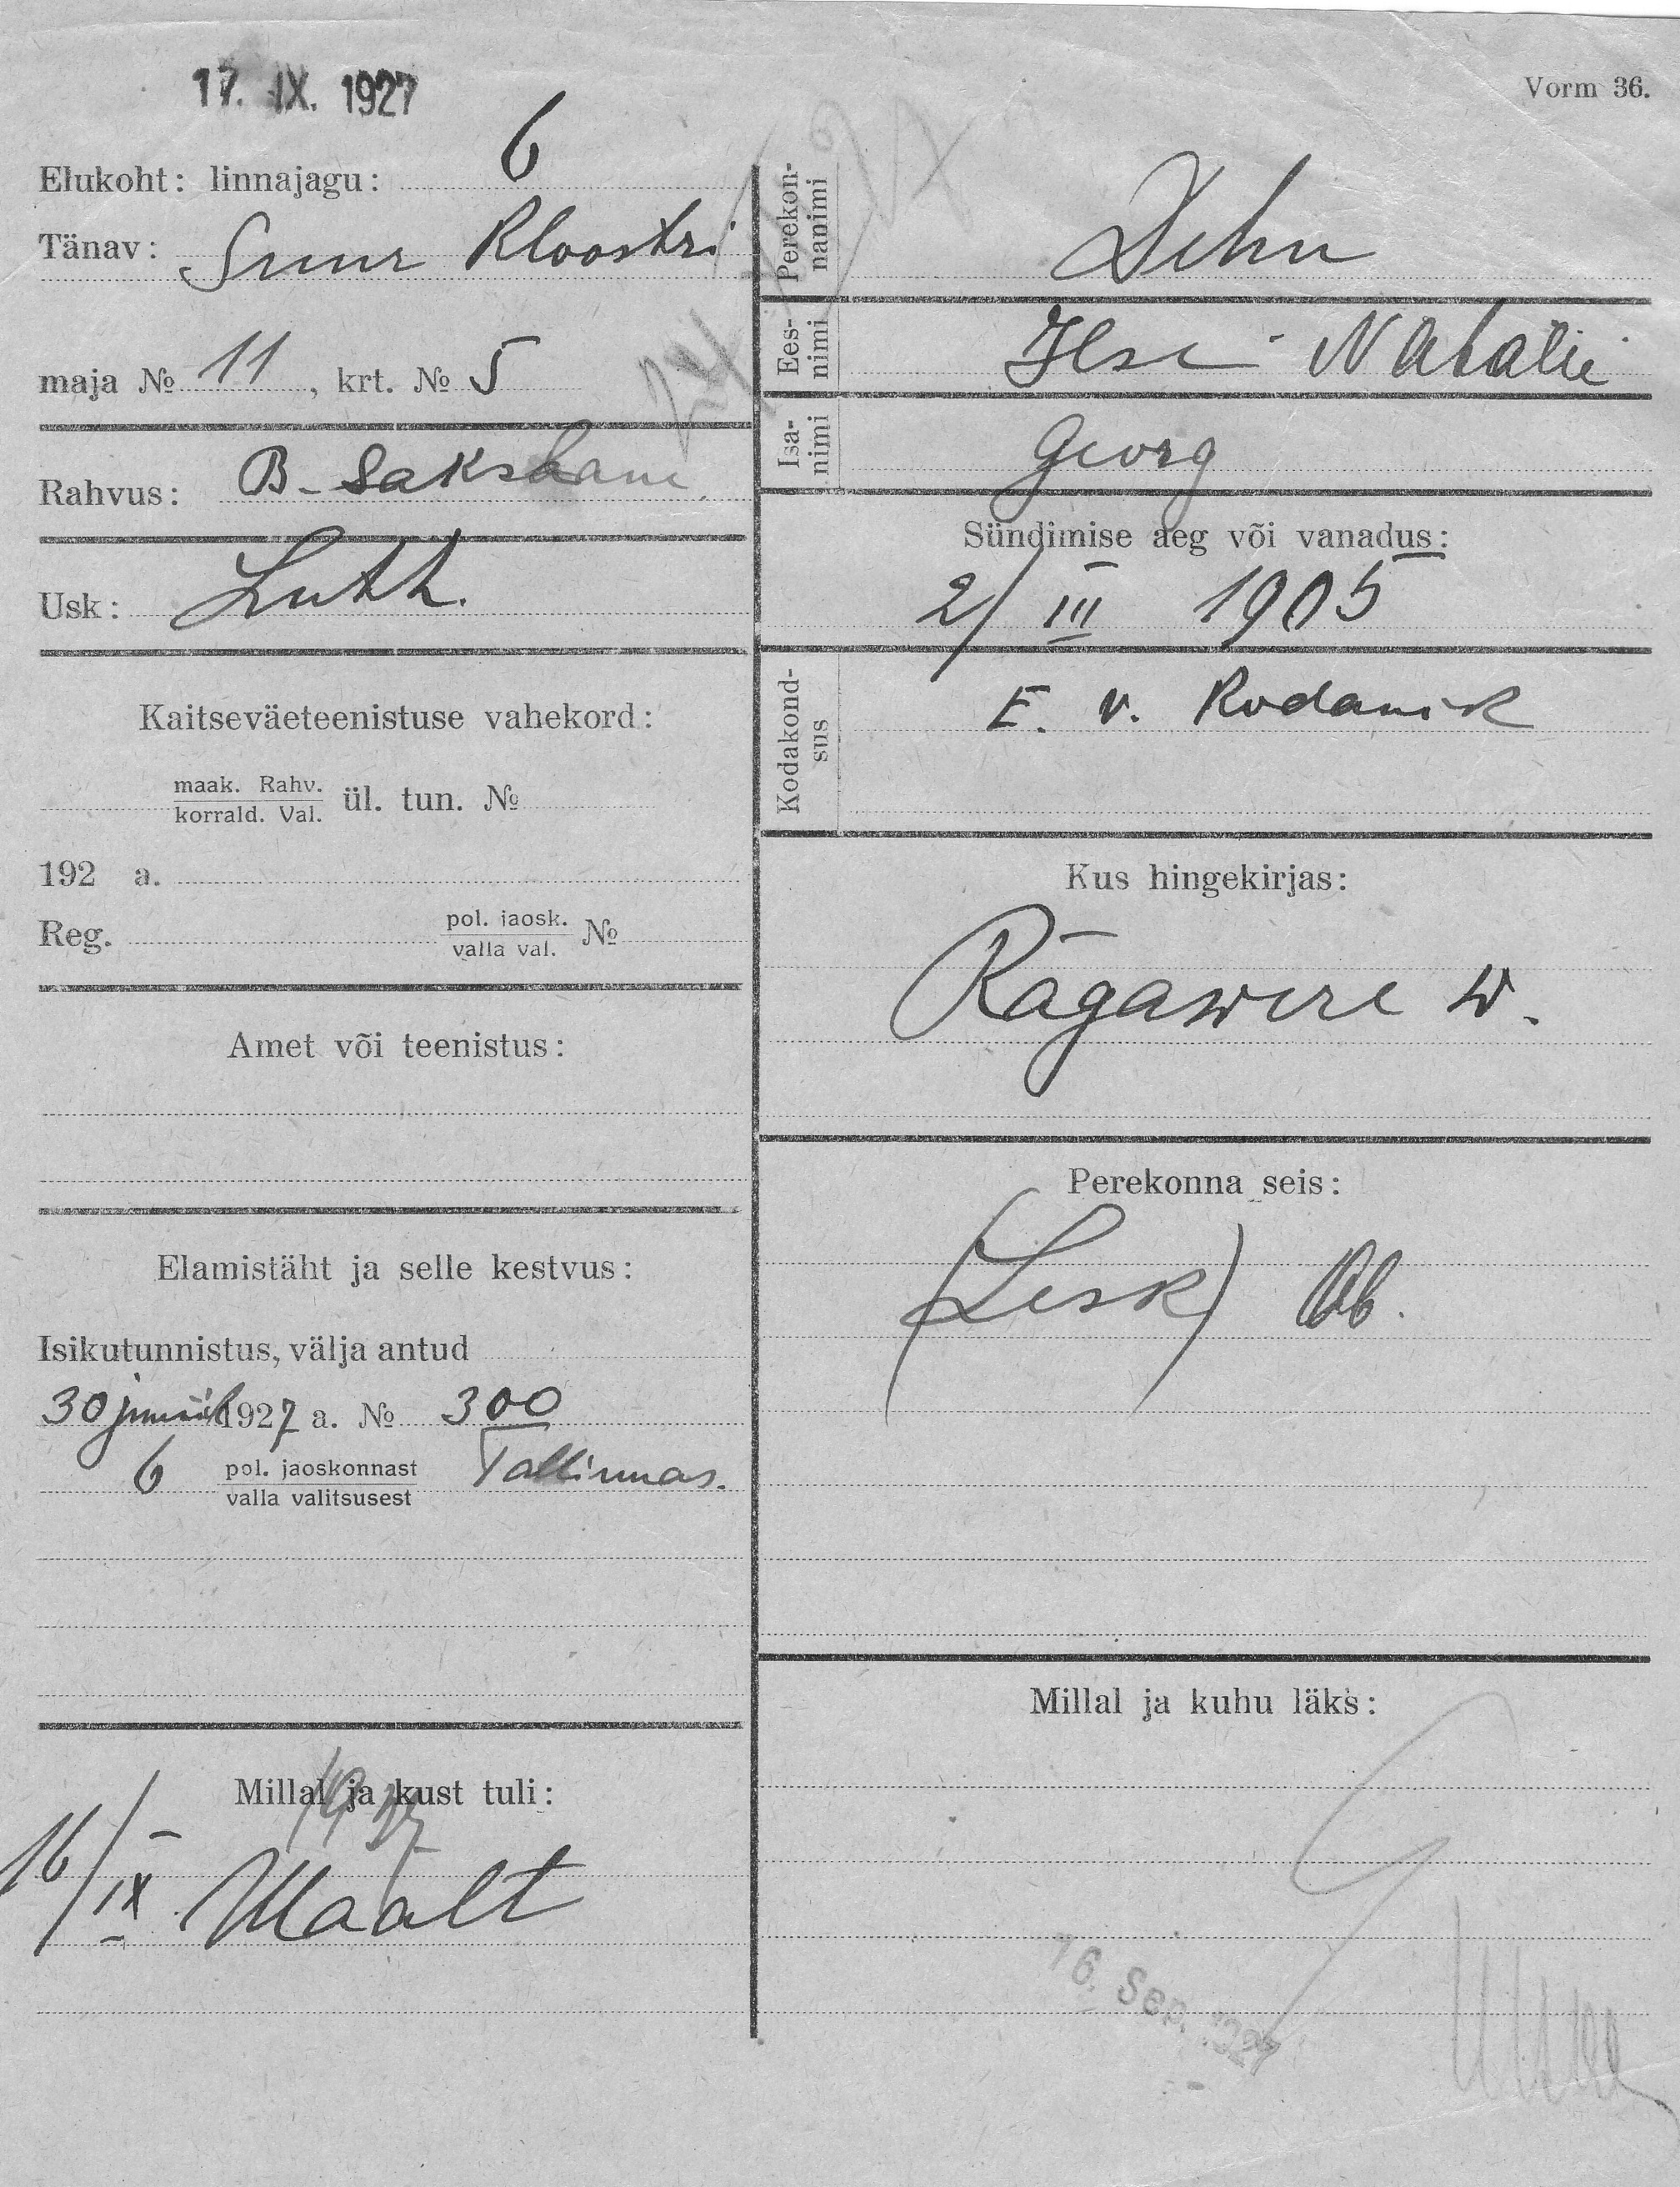 17. IX. 1927
Vorm 36.
Elukoht: linnajagu: 6
Tänav: Suur Kloostri
maja № 11, krt. № 5
Rahvus: B-Sakslane.
Usk: Luth.
Kaitseväeteenistuse vahekord:
maak. Rahv.
korrald. Val. ül. tun. №
192 a.
Reg. pol. jaosk.
valla val. №
Amet või teenistus:
Elamistäht ja selle kestvus:
Isikutunnistus, välja antud
30 juunil 1927 a. № 300
6 pol. jaoskonnast Tallinnas.
valla valitsusest
Millal ja kust tuli:
1927
16/IX Maalt
Perekon-
nanimi Dehn
Ees-
nimi Ilse Natalie
Isa-
nimi Georg
Sündimise aeg või vanadus:
2/III 1905
Kodakond-
sus E. v. Kodanik
Kus hingekirjas:
Rägawere w.
Perekonna seis:
(Lesk)
Millal ja kuhu läks:
16. Sep. 1927